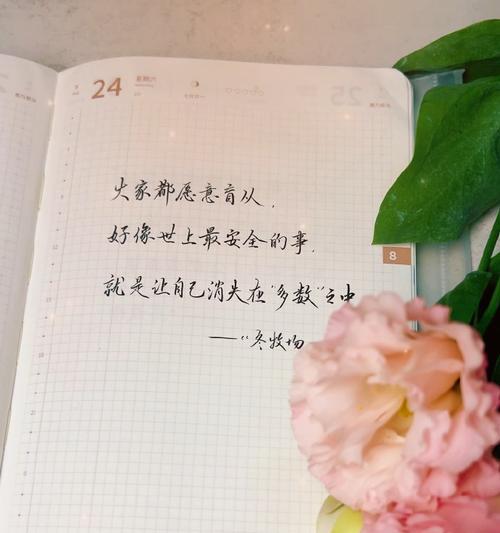 24
星期六
大家都愿意盲从，
好像世上最安全的事，
就是让自己消失在"多数"之中
——《冬牧场
8
25